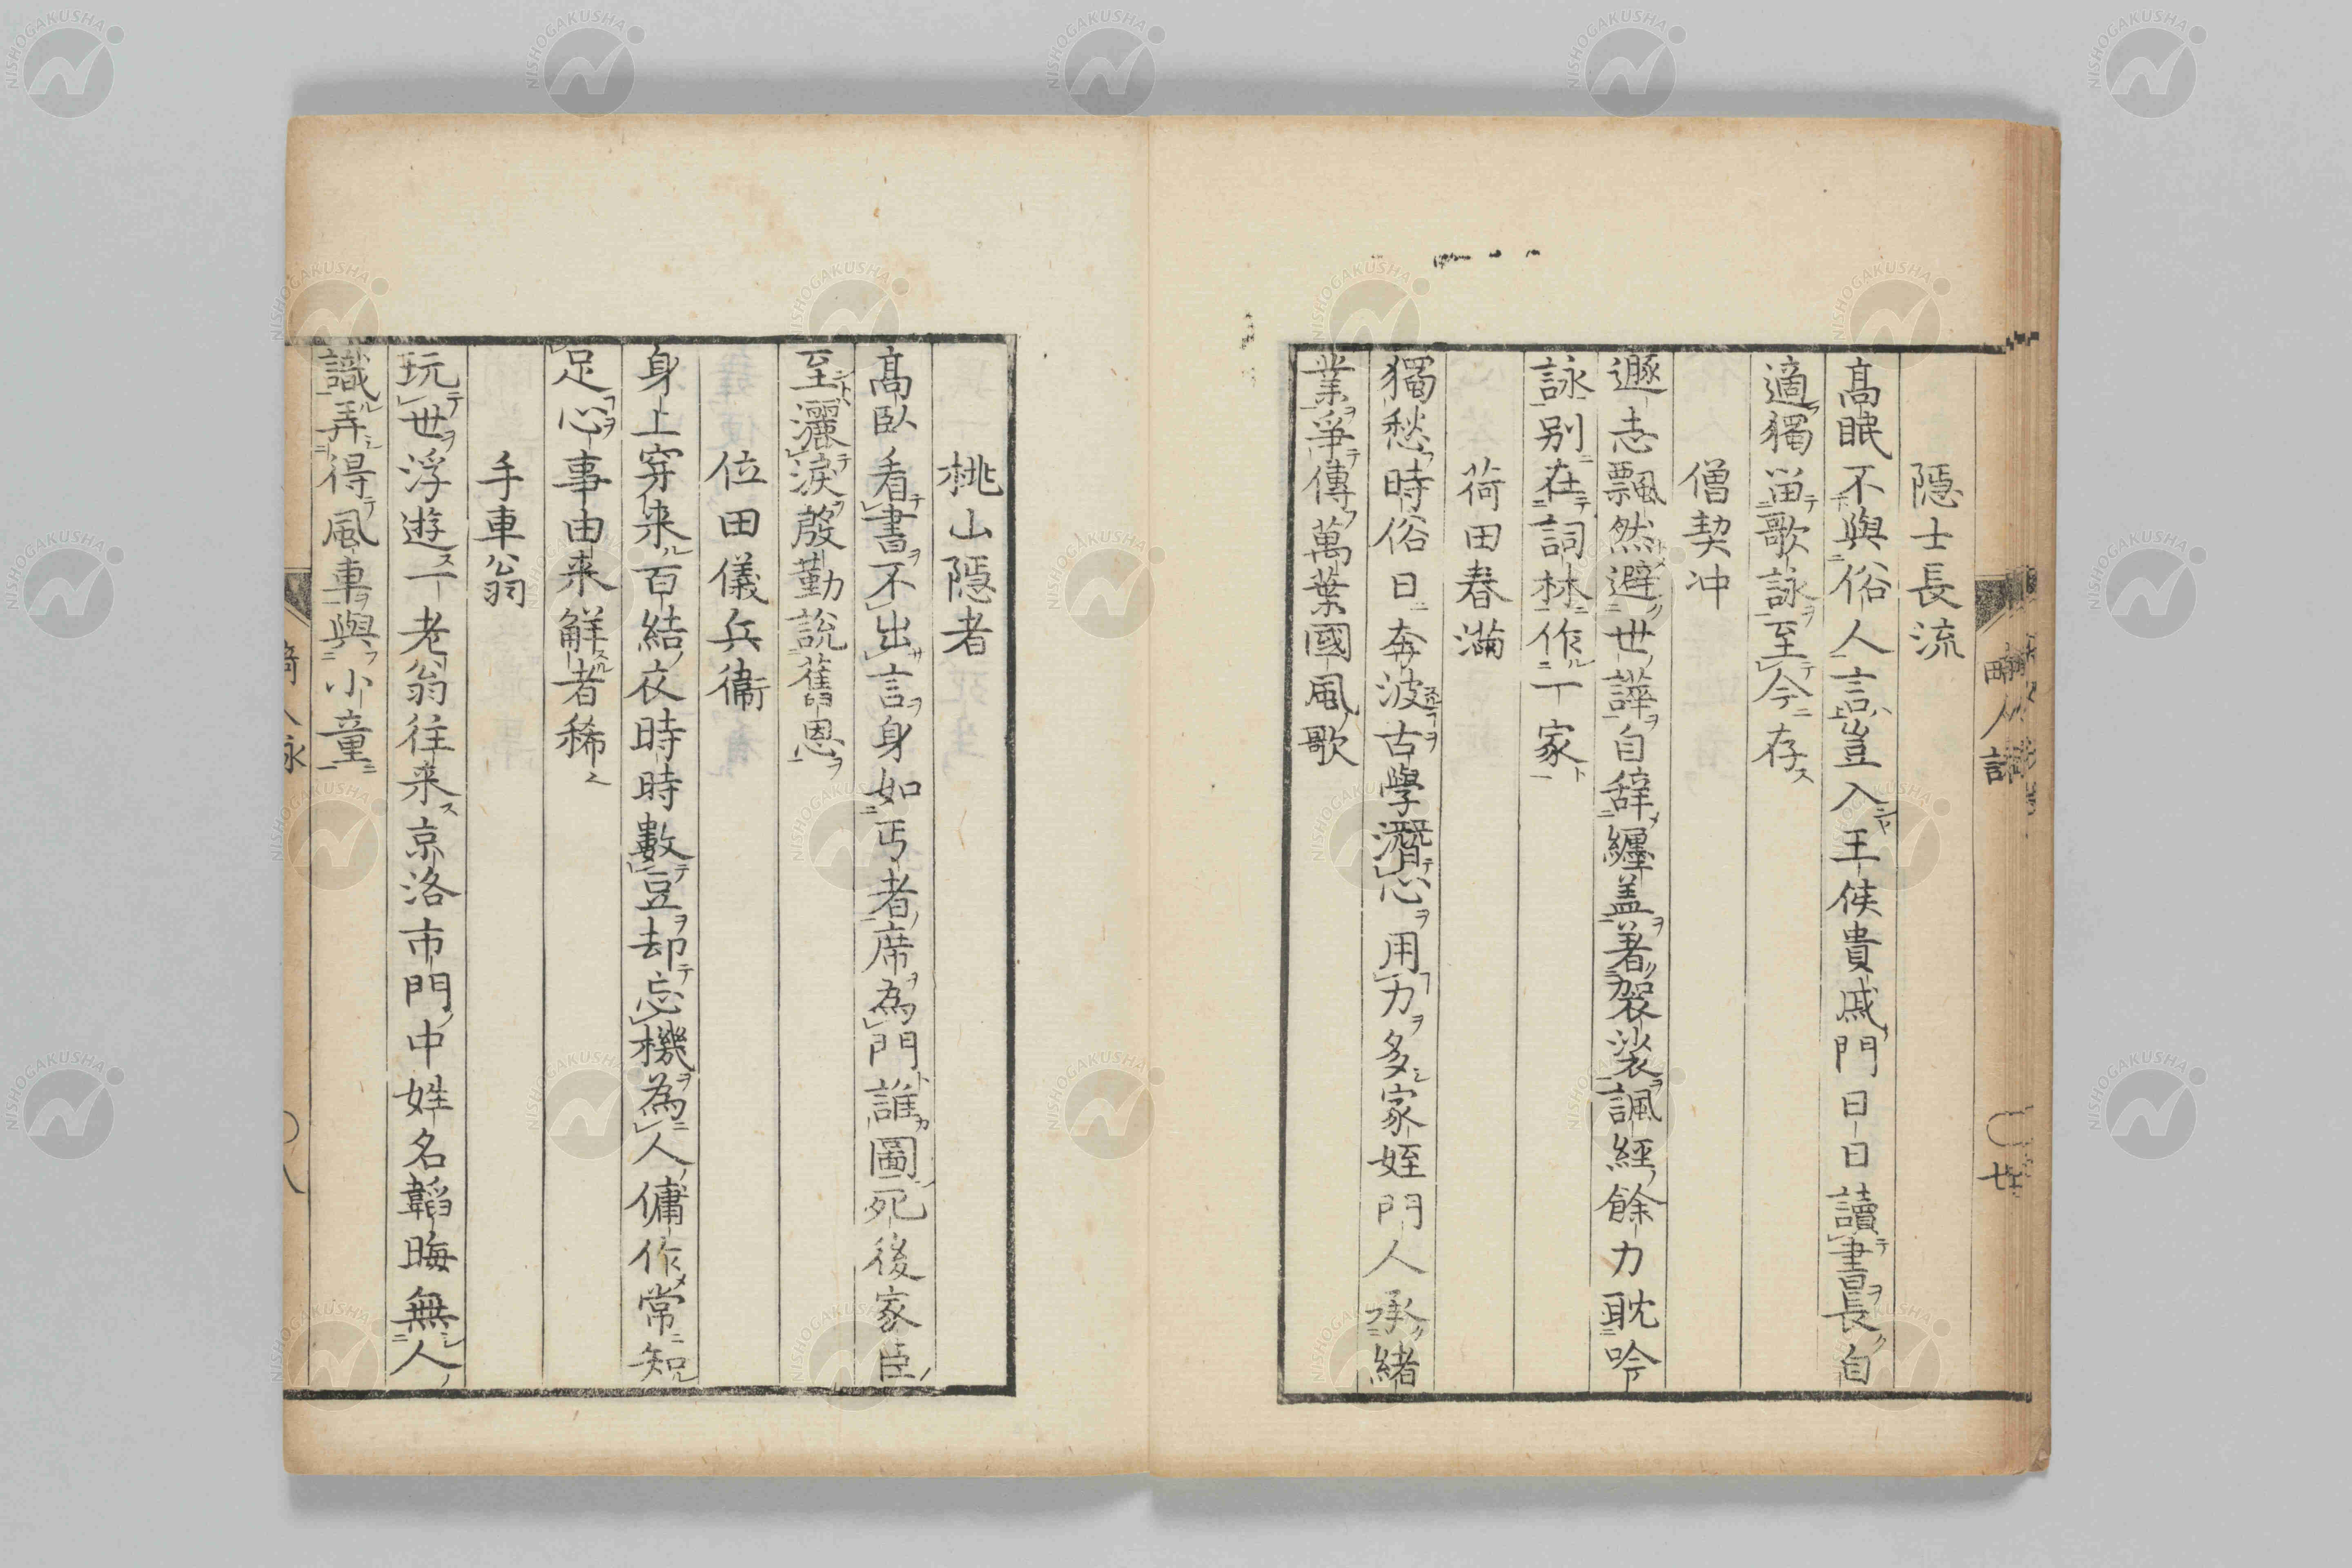 隱士長流
髙眠不與俗人言豈入王侯貴戚門日日讀書長自
適獨留歌詠至今存
僧契冲
遯志飄然避世譁自辞纏盖著袈裟諷經餘力耽吟
詠別在詞林作一家
荷田春滿
獨愁時俗日奔波古學潛心用力多家姪門人承緒
業爭傳萬葉國風歌
桃山隱者
髙臥看書不出言身如丐者席為門誰圖死後家臣
至灑淚殷勤說舊恩
位田儀兵衞
身上穿来百結衣時時數豆却忘機為人傭作常知
足心事由来解者稀
手車翁
玩世浮遊一老翁往来京洛市門中姓名韜晦無人
識弄得風車與小童